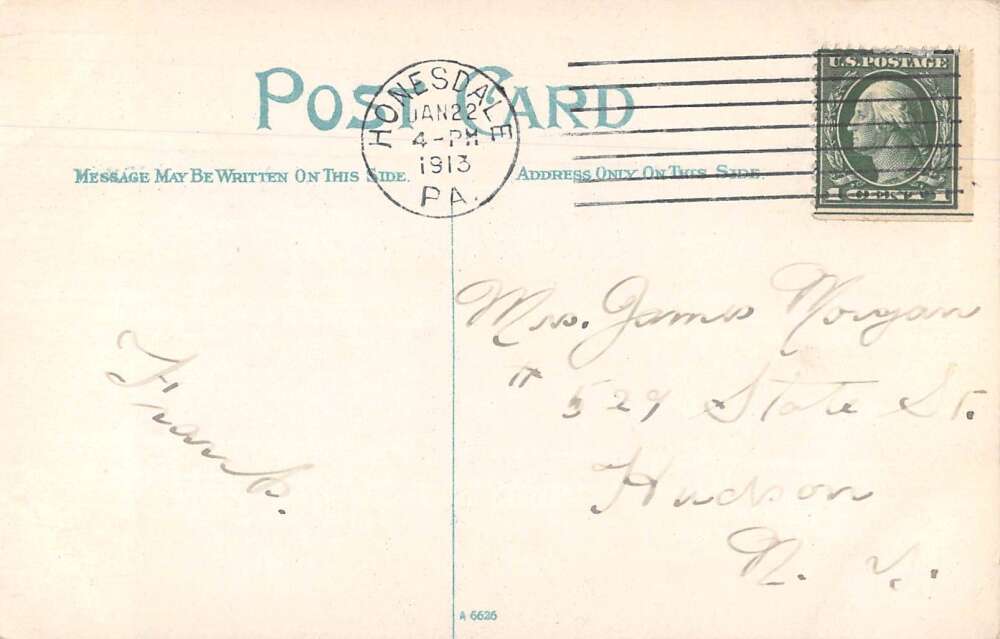 POST CARD
HONESDALE
JAN 22
4-PM
1913
PA.
U.S. POSTAGE
1 CENT 1
MESSAGE MAY BE WRITTEN ON THIS SIDE.
ADDRESS ONLY ON THIS SIDE.
Frank.
Mrs. James Morgan
# 529 State St.
Hudson
N. Y.
A 6626